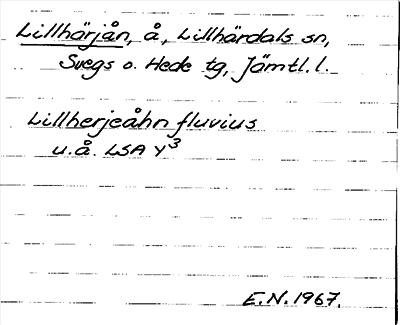 Lillhärjån, å, Lillhärdals sn,
Svegs o. Hede tg, Jämtl. l.
Lillherjeåhn fluvius
u.å. LSA Y3
E.N. 1967.